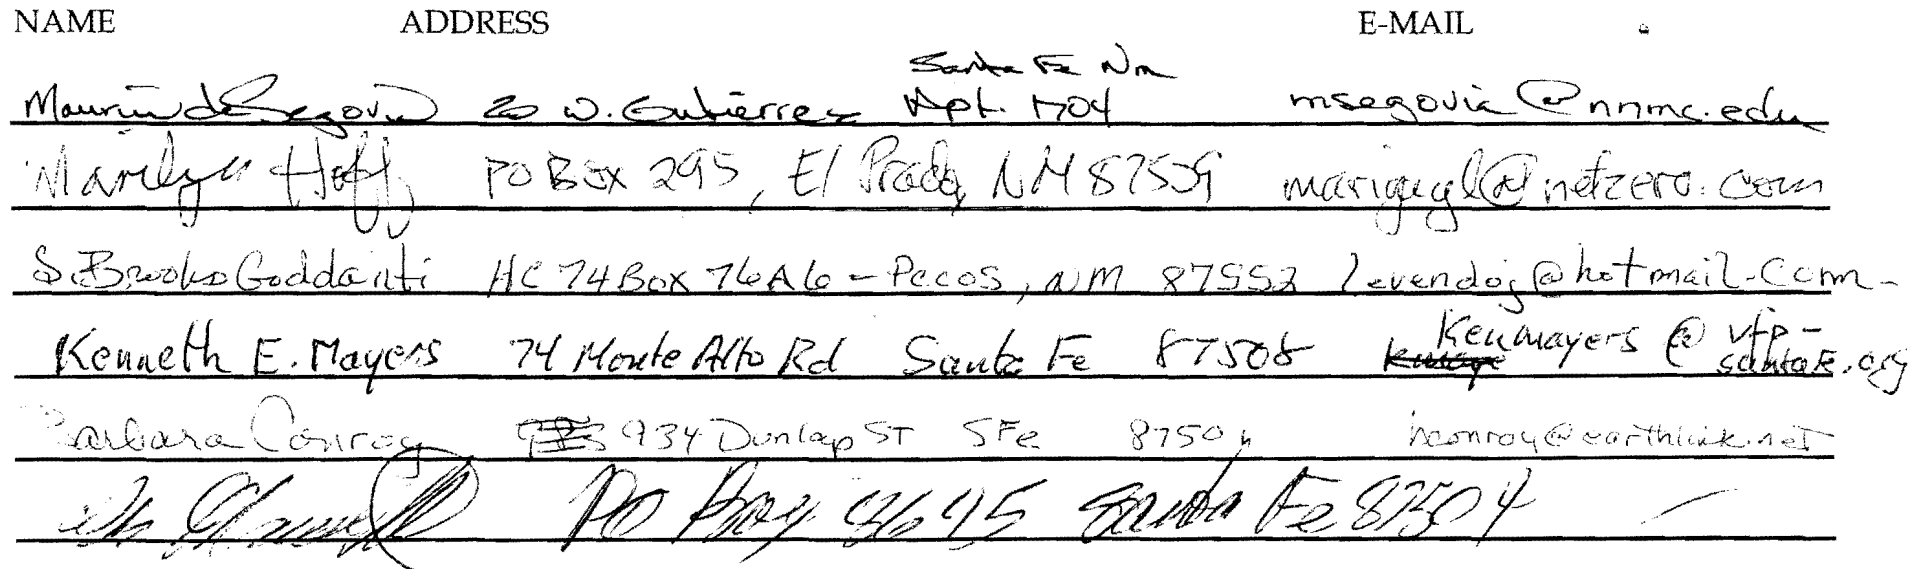 NAME ADDRESS E-MAIL
Santa Fe Nm
de Segovia 20 W. Gutierrez Apt. 1704 msegovia@nnmc.edu
Marilyn Hoff PO Box 295, El Prado, NM 87529 @netzero.com
S. Brooks Goddanti HC 74 Box 76A6 - Pecos, NM 87552 levendoj@hotmail.com
Kenneth E. Mayers 74 Monte Alto Rd Santa Fe 87508 Kenmayers@vfp-
santafe.org
Barbara Conroy 934 Dunlap ST SFe @earthlink.net
PO Box Santa Fe 87504